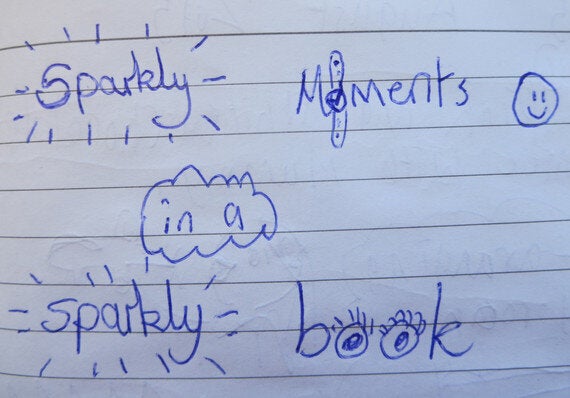 Sparkly Moments
in a
Sparkly book